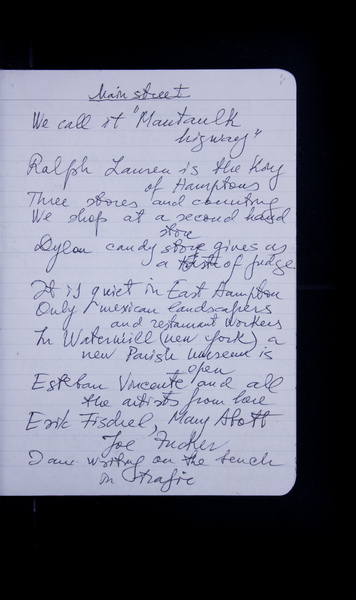 Main street
We call it "Mantaulk
higway"
Ralph Lauren is the King
of Hamptons
Three stores and counting
We shop at a second hand
store
Dylan candy store gives us
a taste of fudge
It is quiet in East Hampton
Only mexican landscapers
and restaurant workers
In Watermill (new york) a
new Parish museum is
open
Esteban Vincente and all
the artists from here
Erik Fischel, Mary Abott
Joe Zucker
I am writing on the bench
in trafic